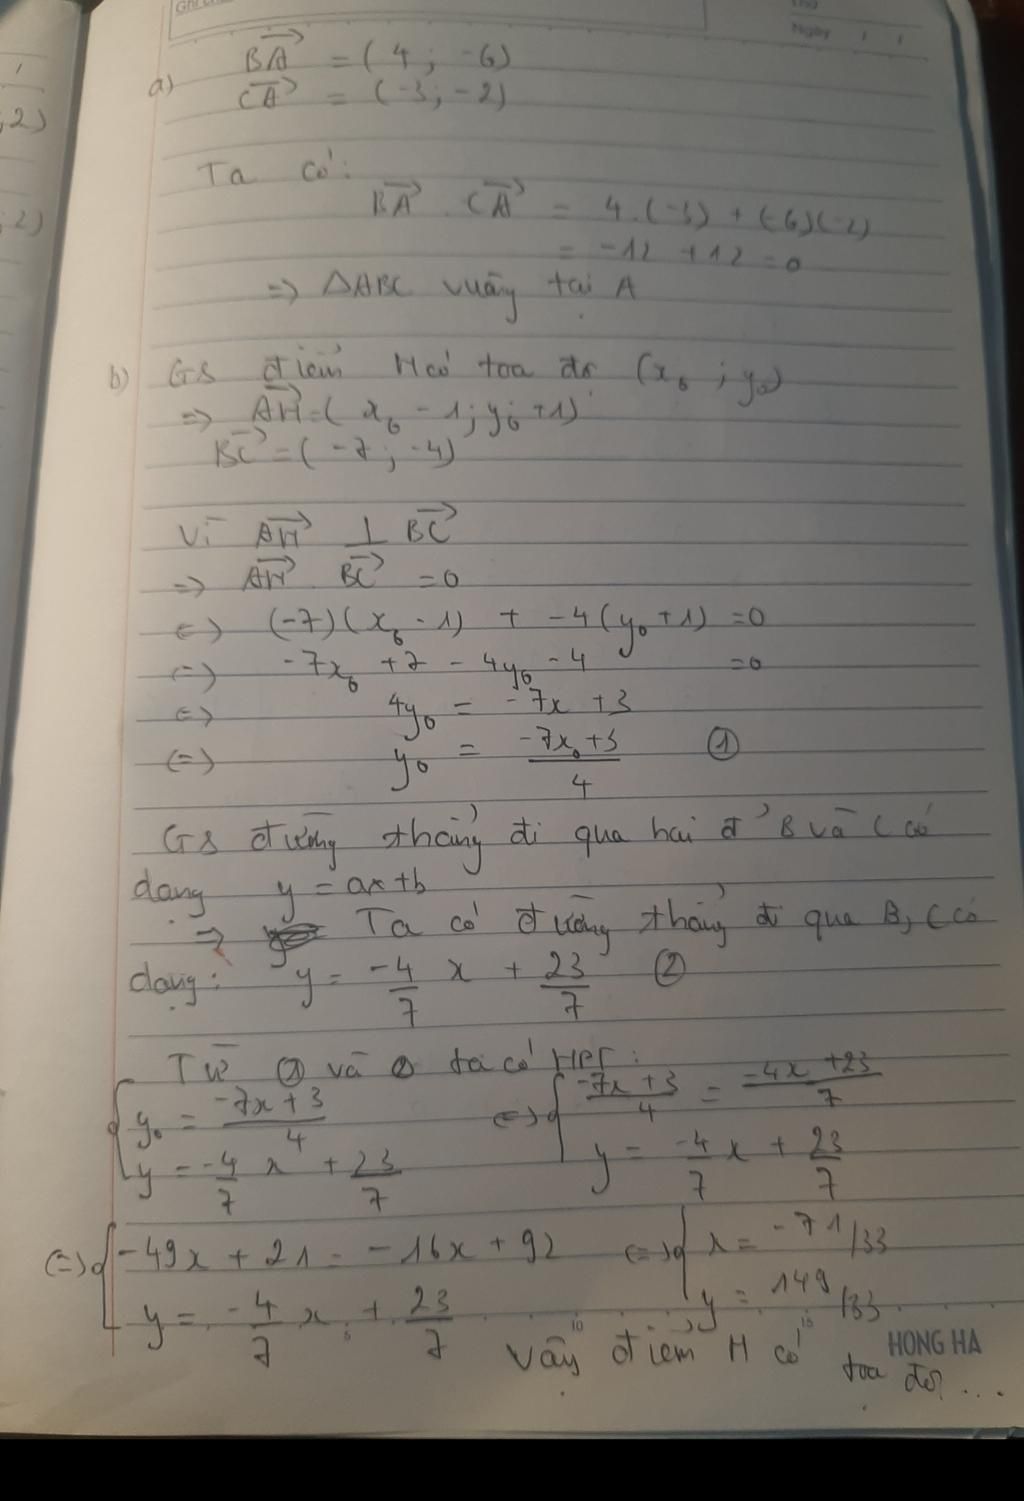 Ngày
;2)
;2)
a) BA→ = (4 ; -6)
CA→ = (-3 ; -2)
Ta có:
BA→ . CA→ = 4.(-3) + (-6)(-2)
= -12 + 12 = 0
=> ΔABC vuông tại A
b) GS điểm H có toạ độ (x₀ ; y₀)
=> AH→ = (x₀ - 1; y₀ + 1)
BC→ = (-7 ; -4)
Vì AH→ ⊥ BC→
=> AH→ BC→ = 0
<=> (-7)(x₀ - 1) + -4(y₀ + 1) = 0
<=> -7x₀ + 7 - 4y₀ - 4 = 0
<=> 4y₀ = -7x + 3
<=> y₀ = (-7x₀ + 3)/4 ①
GS đường thẳng đi qua hai đ' B và C có
dạng y = ax + b
=> Ta có đường thẳng đi qua B, C có
dạng: y = -4/7 x + 23/7 ②
Từ ① và ② ta có HPT:
{ y₀ = (-7x + 3)/4 <=> { (-7x + 3)/4 = (-4x + 23)/7
y = -4/7 x + 23/7 y = -4/7 x + 23/7
<=> { -49x + 21 = -16x + 92 <=> { x = -71/33
y = -4/7 x + 23/7 y = 149/33
Vậy điểm H có toạ độ ...
HONG HA